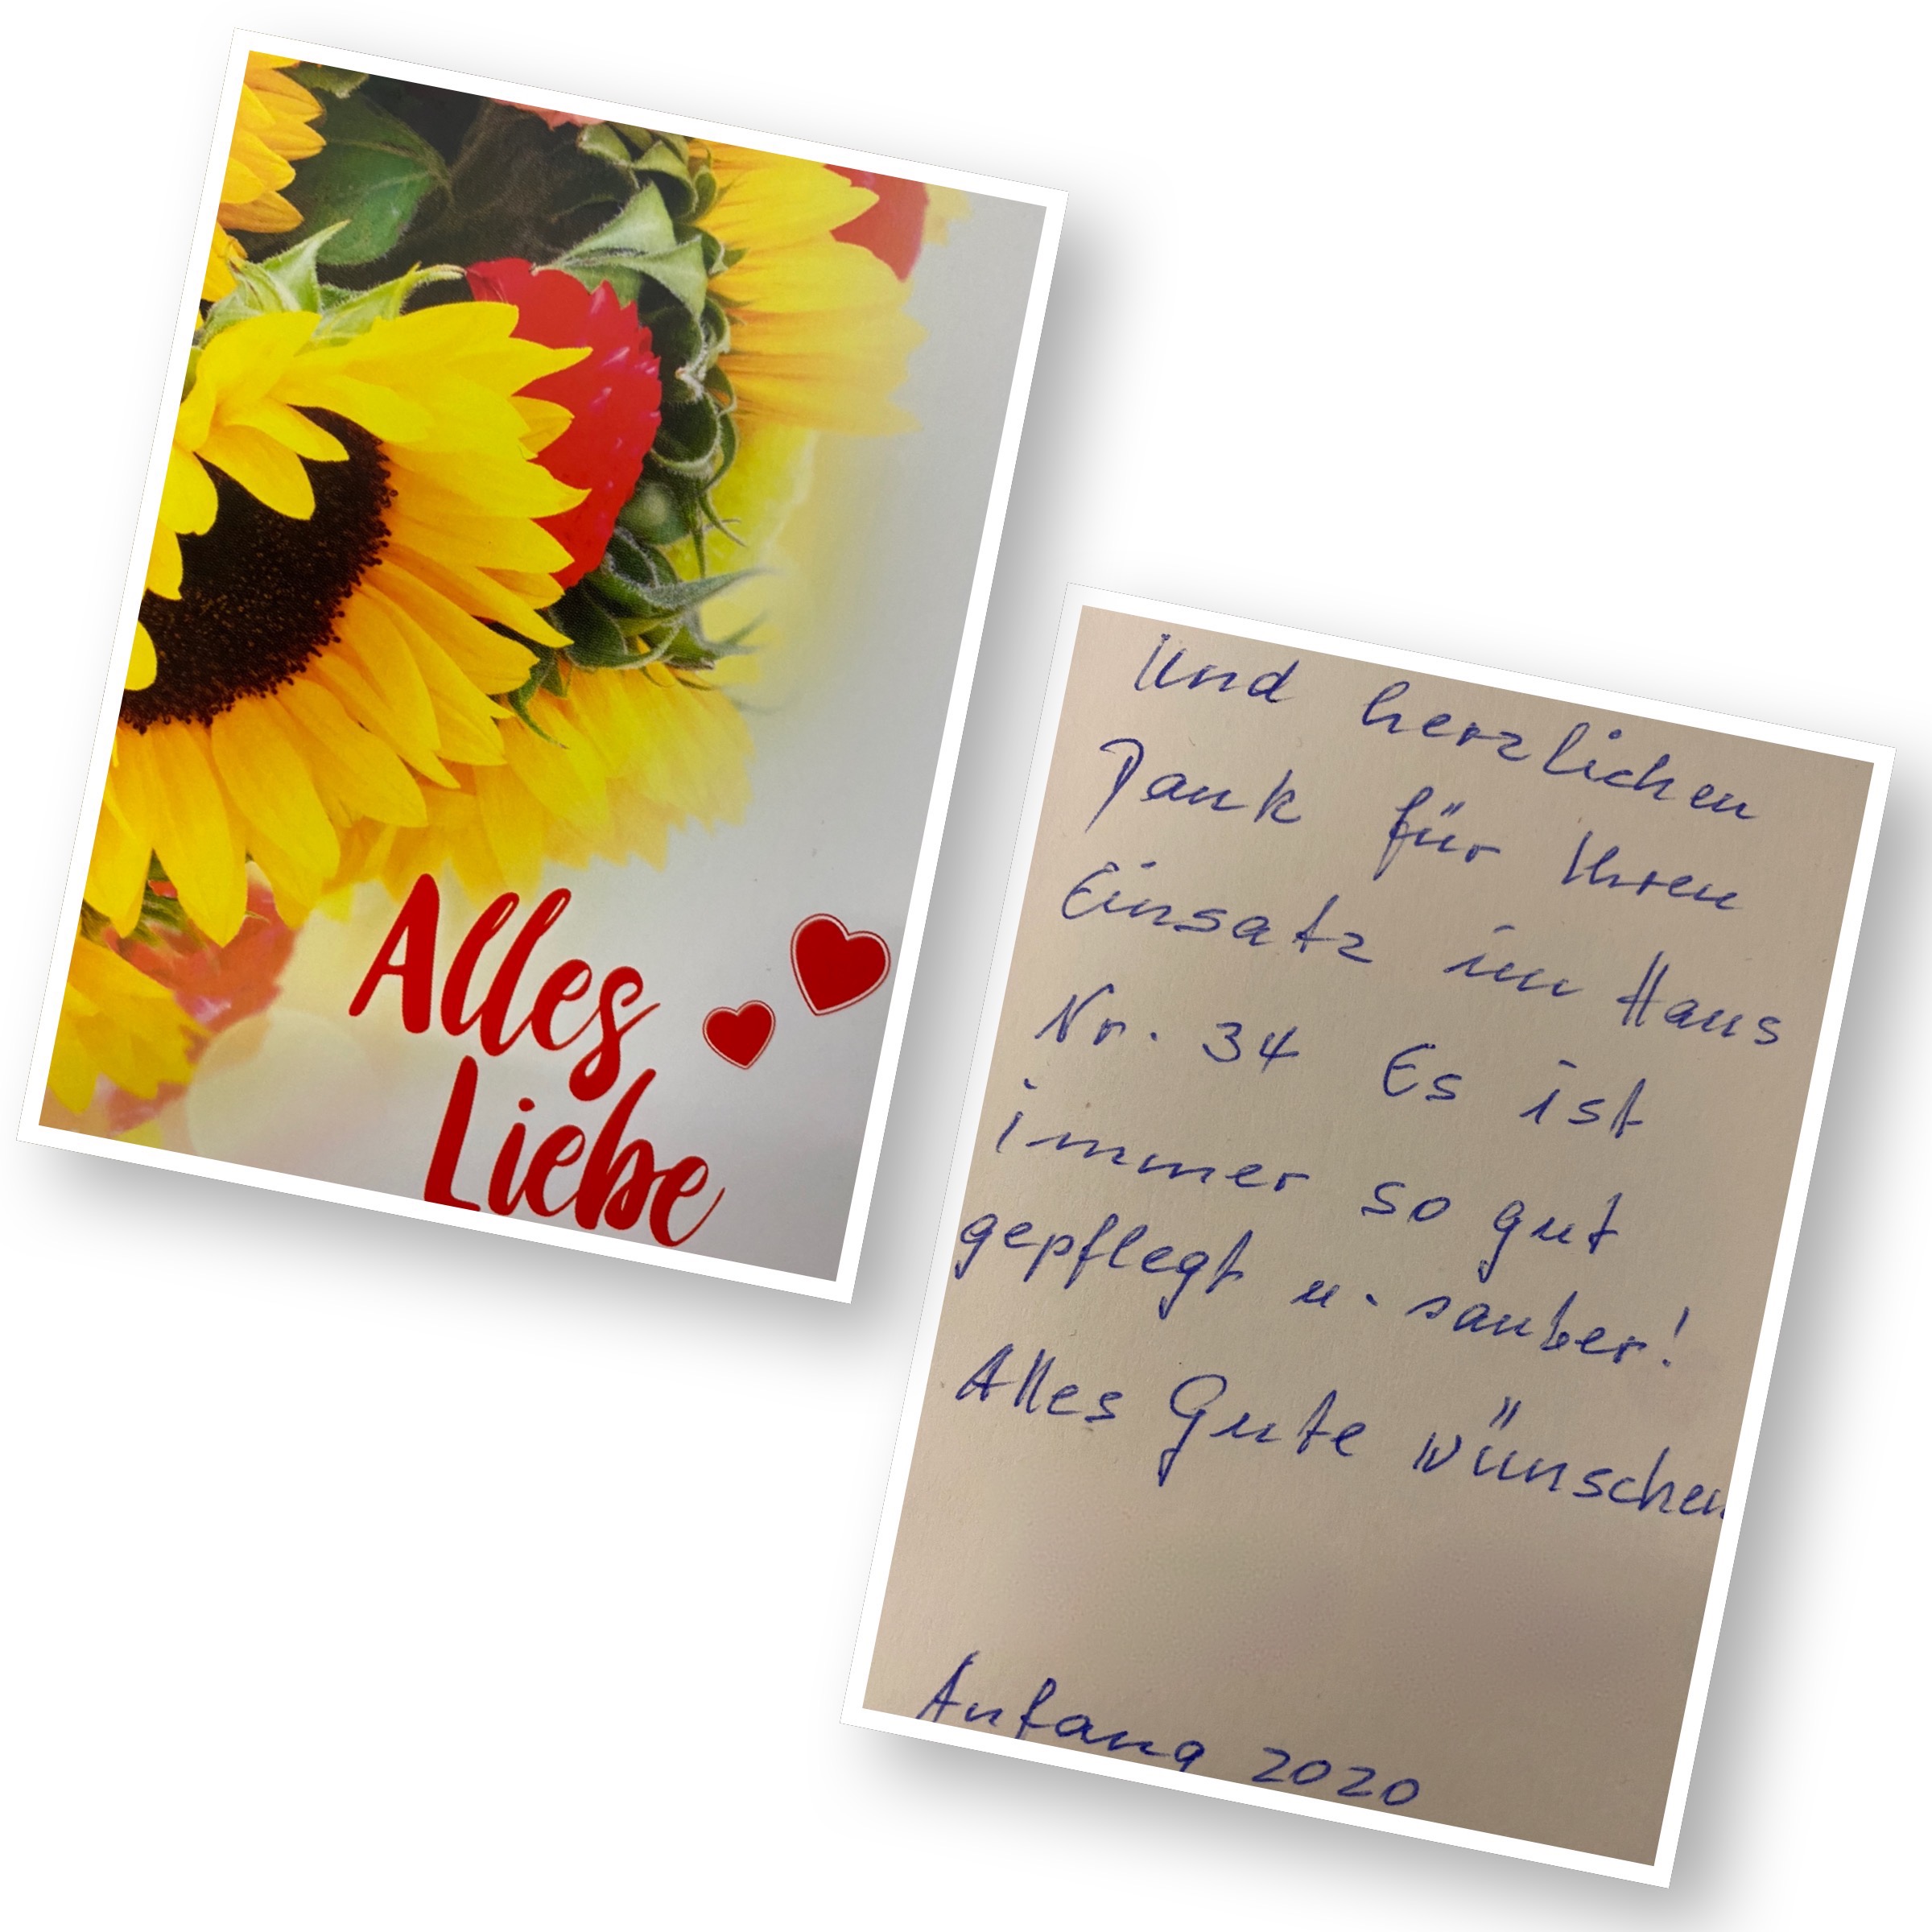 Alles
Liebe
Und herzlichen
Dank für Ihren
Einsatz im Haus
Nr. 34 Es ist
immer so gut
gepflegt u. sauber!
Alles Gute wünschen
Anfang 2020